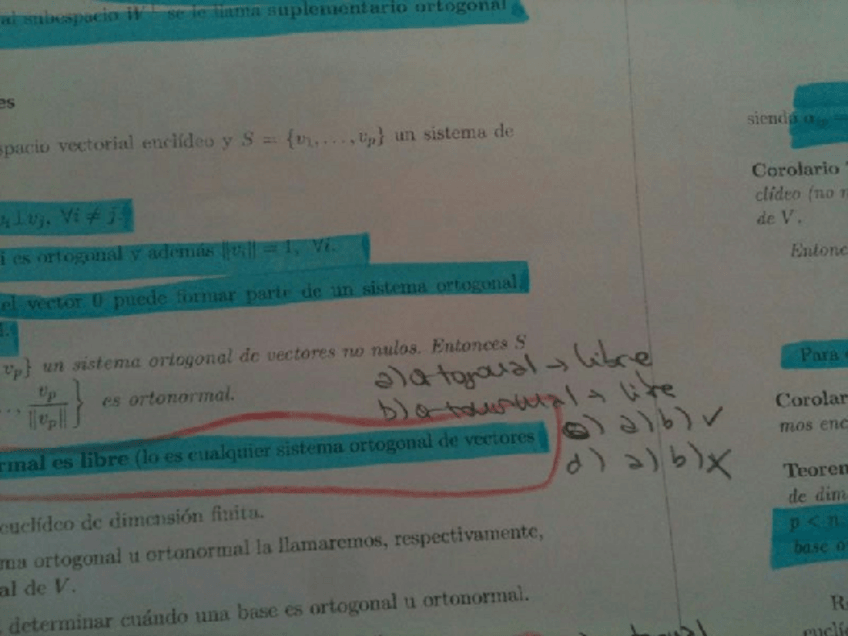 al subespacio W⊥ se le llama suplementario ortogonal
es
spacio vectorial euclídeo y S = {v₁, . . . , vₚ} un sistema de
vᵢ⊥vⱼ, ∀i ≠ j.
es ortogonal y además ||vᵢ|| = 1, ∀i.
el vector 0 puede formar parte de un sistema ortogonal
vₚ} un sistema ortogonal de vectores no nulos. Entonces S
. . , vₚ/||vₚ||} es ortonormal.
rmal es libre (lo es cualquier sistema ortogonal de vectores
euclídeo de dimensión finita.
ma ortogonal u ortonormal la llamaremos, respectivamente,
al de V.
determinar cuándo una base es ortogonal u ortonormal.
a) ortogonal → libre
b) ortonormal → libre
c) a) b) ✓
d) a) b) ✗
siendo
Corolario
clídeo (no
de V.
Entonc
Para
Corolar
mos enc
Teorem
de dim
p < n.
base o
R
euclí